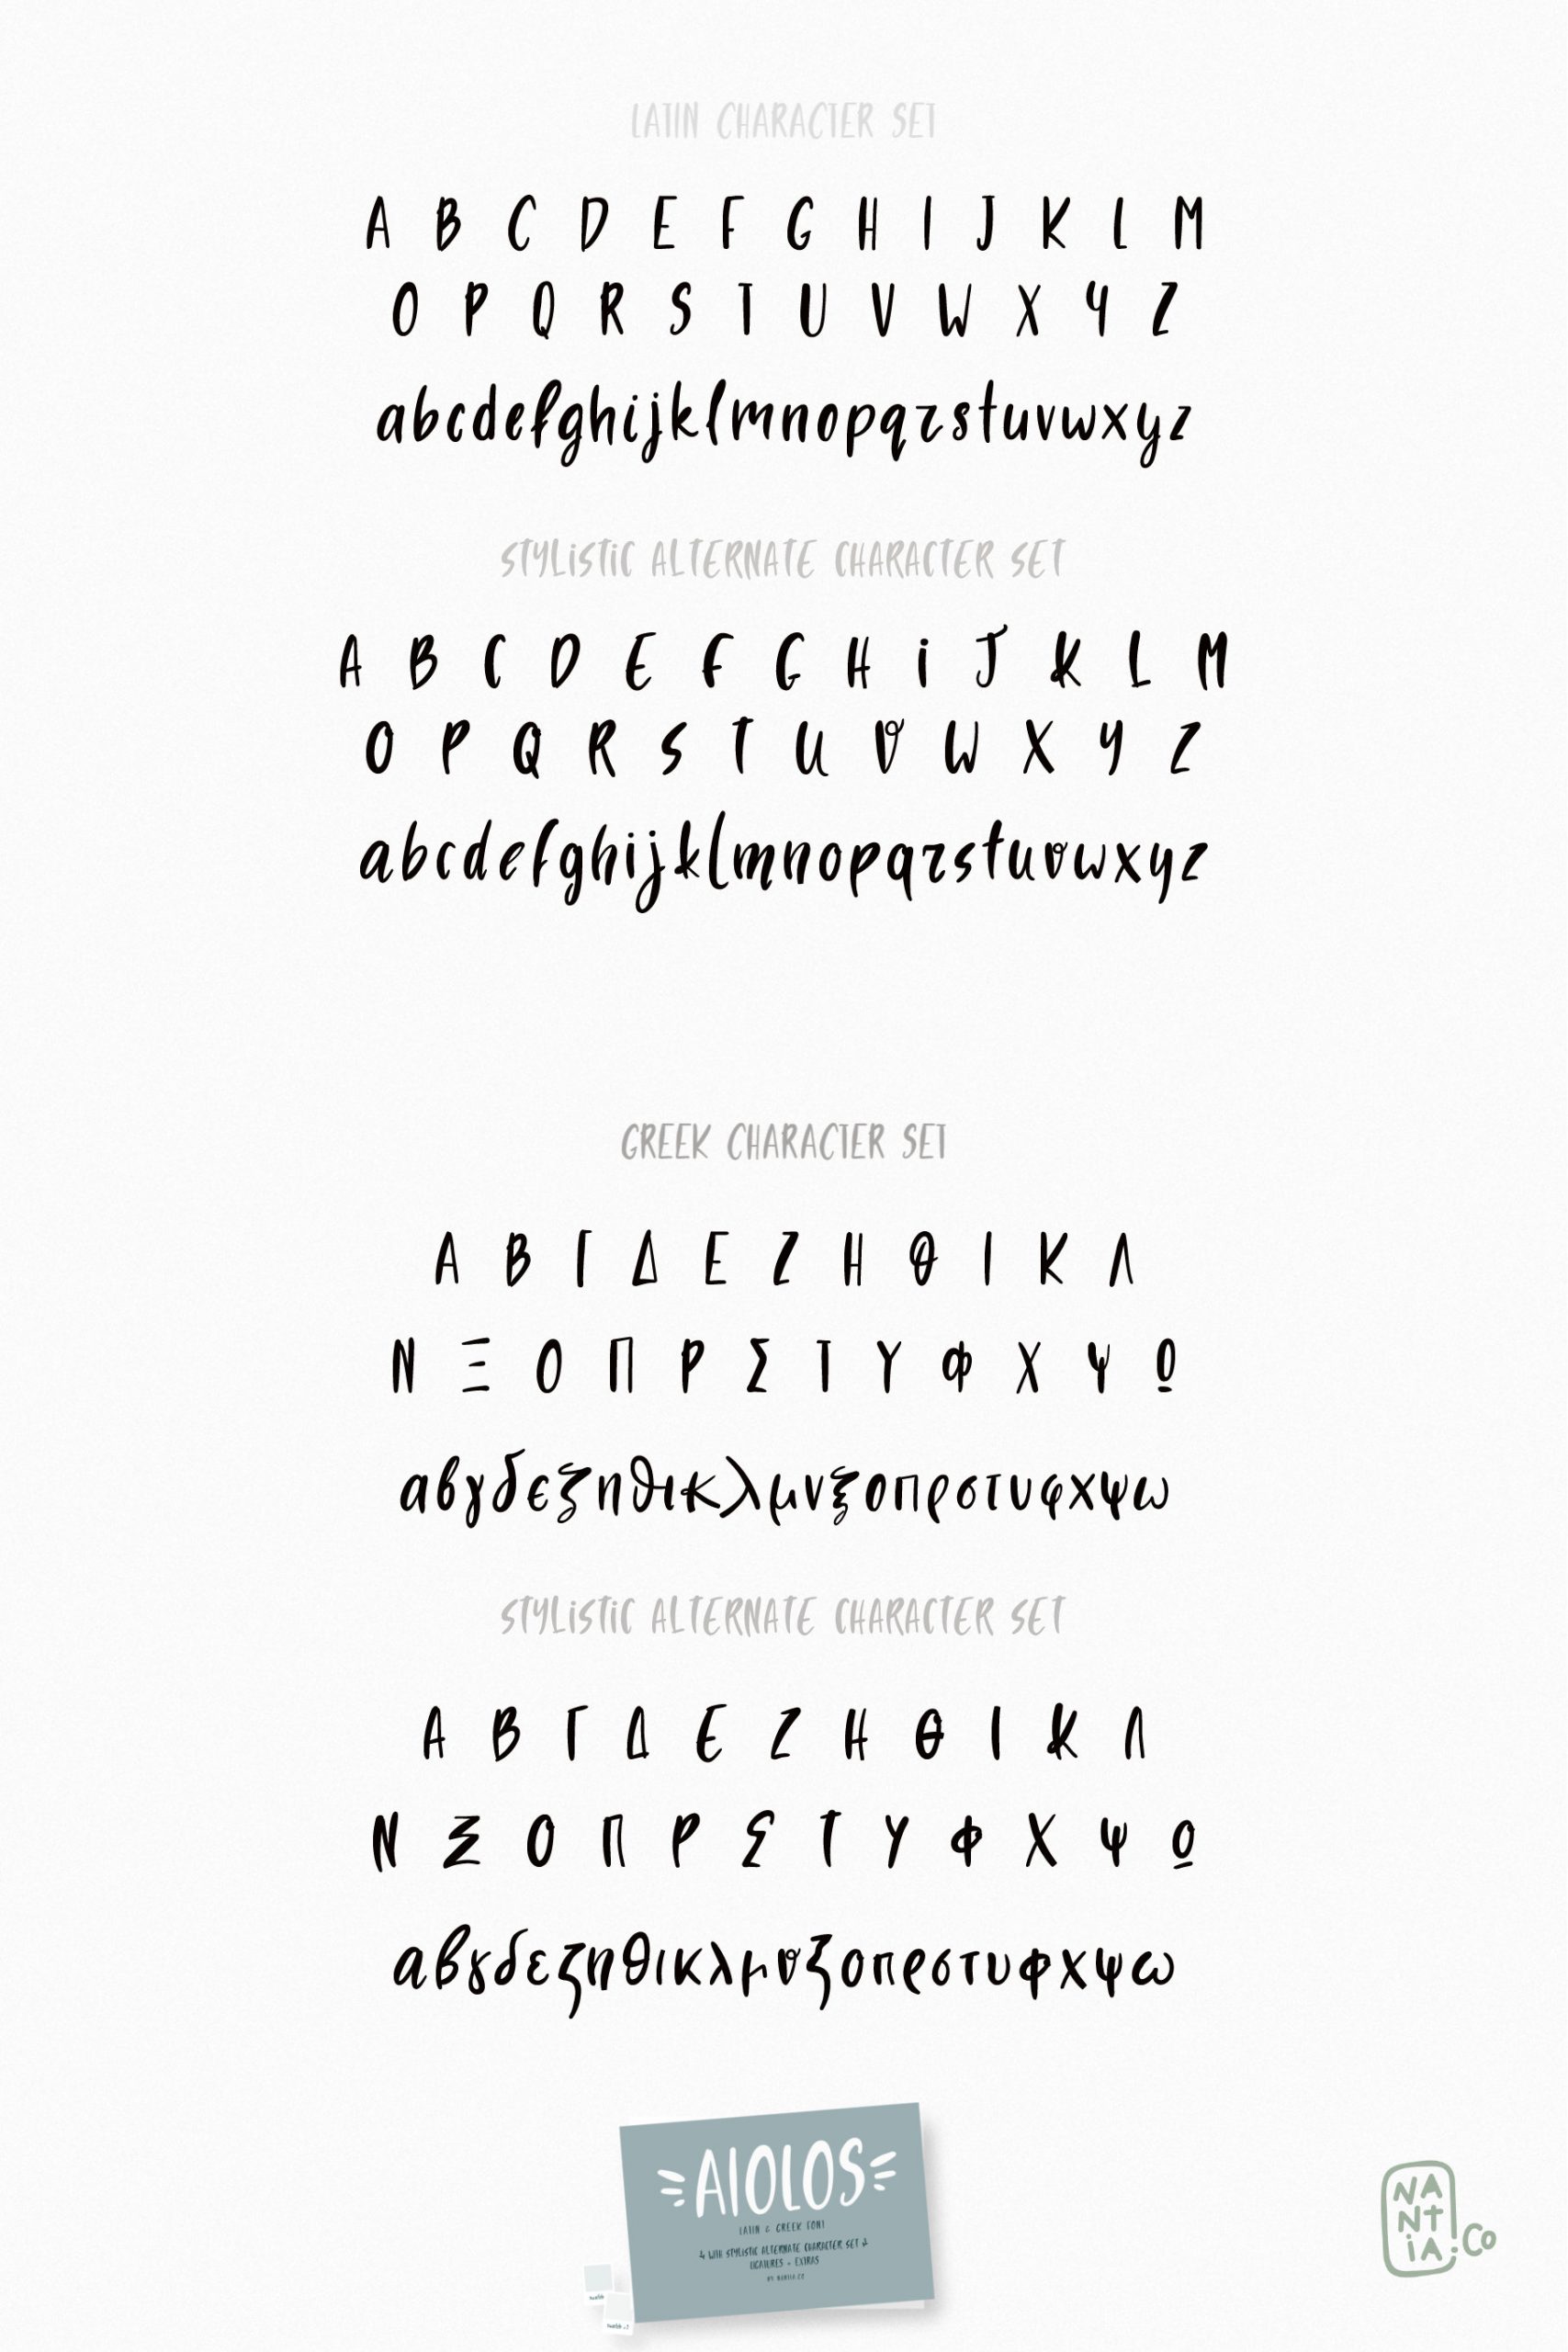 LATIN CHARACTER SET
A B C D E F G H I J K L M
O P Q R S T U V W X Y Z
abcdefghijklmnopqrstuvwxyz
STYLiSTiC ALTERNATE CHARACTER SET
A B C D E F G H i J K L M
O P Q R S T U V W X Y Z
abcdefghijklmnopqrstuvwxyz
GREEK CHARACTER SET
Α Β Γ Δ Ε Ζ Η Θ Ι Κ Λ
Ν Ξ Ο Π Ρ Σ Τ Υ Φ Χ Ψ Ω
αβγδεζηθικλμνξοπρστυφχψω
STYLiSTiC ALTERNATE CHARACTER SET
Α Β Γ Δ Ε Ζ Η Θ Ι Κ Λ
Ν Ξ Ο Π Ρ Σ Τ Υ Φ Χ Ψ Ω
αβγδεζηθικλμνξοπρστυφχψω
AIOLOS
LATIN & GREEK FONT
& WIH STYLISTIC ALTERNATE CHARACTER SET &
LIGATURES - EXTRAS
BY NANTIA.CO
NA
NT
iA.Co